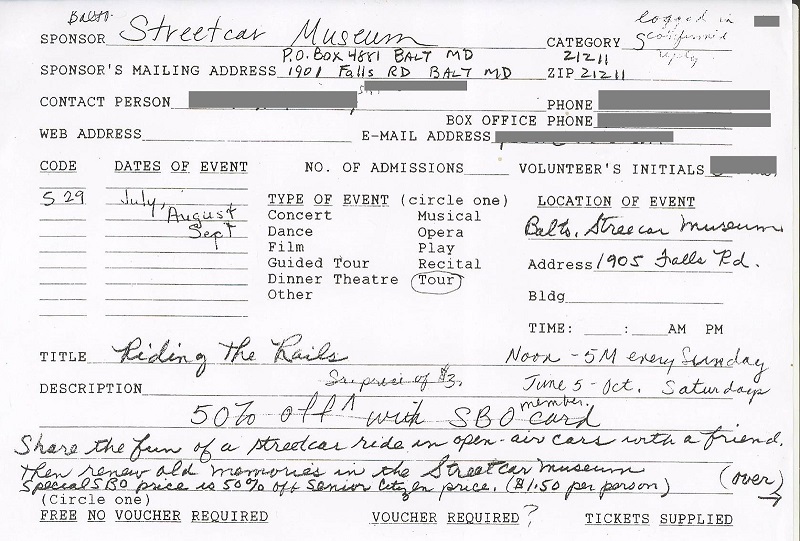 Balto.
SPONSOR Streetcar Museum
logged in
CATEGORY S
reply
P.O. BOX 4881 BALT MD 21211
SPONSOR'S MAILING ADDRESS 1901 Falls RD BALT MD ZIP 21211
CONTACT PERSON PHONE
BOX OFFICE PHONE
WEB ADDRESS E-MAIL ADDRESS
CODE DATES OF EVENT NO. OF ADMISSIONS VOLUNTEER'S INITIALS
S 29 July, August Sept
TYPE OF EVENT (circle one) LOCATION OF EVENT
Concert Musical
Dance Opera Balto. Streecar Museum
Film Play
Guided Tour Recital Address 1905 Falls Rd.
Dinner Theatre Tour
Other Bldg
TIME: : AM PM
TITLE Riding The Rails Noon - 5M every Sunday
DESCRIPTION price of $3. June 5 - Oct. Saturdays
50% off ^ with SBO member. card
Share the fun of a streetcar ride in open-air cars with a friend.
Then renew old memories in the Streetcar Museum
Special SBO price is 50% off Senior Citizen price. ($1.50 per person) (over)
(Circle one)
FREE NO VOUCHER REQUIRED VOUCHER REQUIRED? TICKETS SUPPLIED